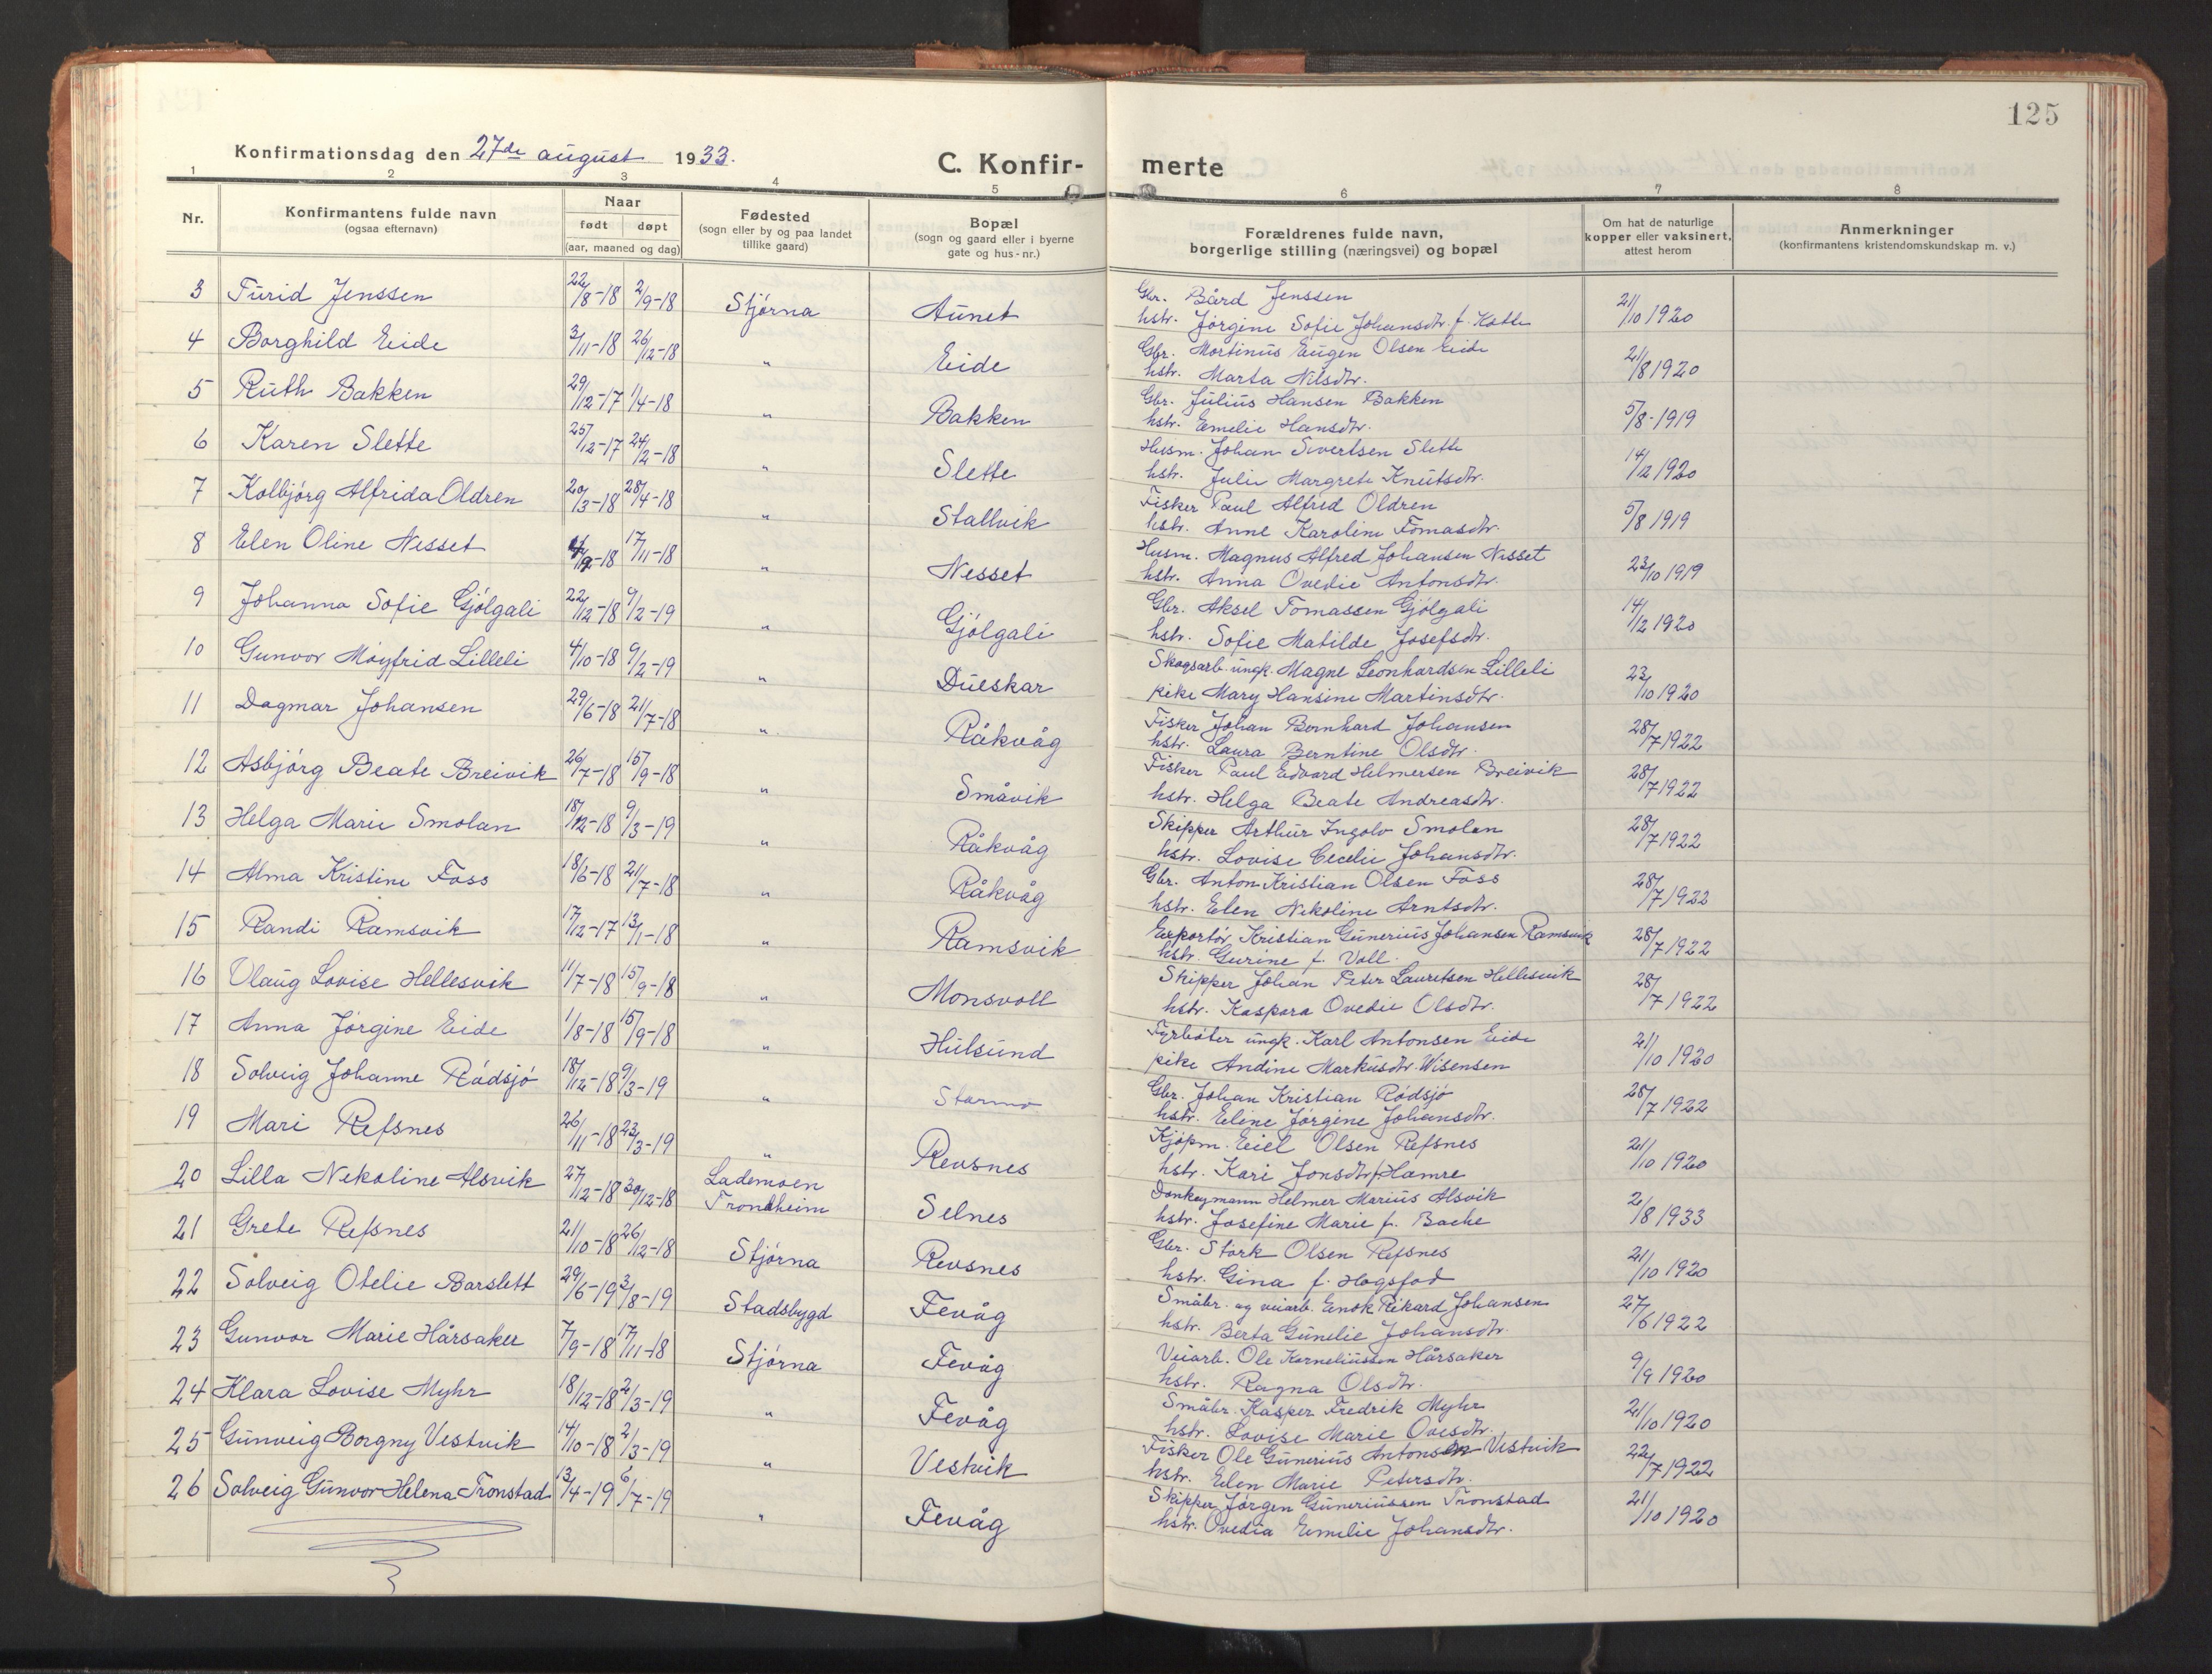 125
Konfirmationsdag den 27de august 1933.
C. Konfir- merte
1 2 3 4 5 6 7 8
Nr.
Konfirmantens fulde navn (ogsaa efternavn)
Naar født døpt (aar, maaned og dag)
Fødested (sogn eller by og paa landet tillike gaard)
Bopæl (sogn og gaard eller i byerne gate og hus-nr.)
Forældrenes fulde navn, borgerlige stilling (næringsvei) og bopæl
Om hat de naturlige kopper eller vaksinert, attest herom
Anmerkninger (konfirmantens kristendomskundskap m. v.)
3 Turid Jenssen 22/8-18 2/9-18 Stjørna Aunet Gbr. Bård Jenssen 21/10 1920
hstr. Jørgine Sofie Johansdtr. f.
4 Borghild Eide 3/11-18 26/12-18 " Eide Gbr. Martinus Eugen Olsen Eide 21/8 1920
hstr. Marta Nilsdtr.
5 Ruth Bakken 29/12-17 1/4-18 " Bakken Gbr. Julius Hansen Bakken 5/8-1919
hstr. Emelie Hansdtr.
6 Karen Slette 25/12-17 24/2-18 " Slette Husm. Johan Sivertsen Slette 14/2 1920
hstr. Julie Margrete Knutsdtr.
7 Kolbjørg Alfrida Oldren 20/3-18 28/4-18 " Stallvik Fisker Paul Alfred Oldren 5/8 1919
hstr. Anne Karoline Tomasdtr.
8 Elen Oline Nesset 17/11-18 " Nesset Husm. Magnus Alfred Johansen Nesset 23/10 1919
hstr. Anna Ovedie Antonsdtr.
9 Johanna Sofie Gjølgali 22/12-18 9/2-19 " Gjølgali Gbr. Aksel Tomassen Gjølgali 14/2 1920
hstr. Sofie Matilde Josefsdtr.
10 Gunvor Møyfrid Lilleli 4/10-18 9/2-19 " Dueskar Skogsarb. ungk. Magne Leonhardsen Lilleli 23/10 1920
pike Mary Hansine Martinsdtr.
11 Dagmar Johansen 29/6-18 21/7-18 " Råkvåg Fisker Johan Bernhard Johansen 28/7 1922
hstr. Laura Berntine Olsdtr.
12 Asbjørg Beate Breivik 26/7-18 15/9-18 " Småvik Fisker Paul Edvard Helmersen Breivik 28/7 1922
hstr. Helga Beate Andreasdtr.
13 Helga Marie Smolan 18/12-18 9/3-19 " Råkvåg Skipper Arthur Ingolv Smolan 28/7 1922
hstr. Lovise Cecelie Johansdtr.
14 Alma Kristine Foss 18/6-18 21/7-18 " Råkvåg Gbr. Anton Kristian Olsen Foss 28/7 1922
hstr. Elen Nikoline Arntsdtr.
15 Randi Ramsvik 17/12-17 13/1-18 " Ramsvik Exportør Kristian Gunerius Johansen Ramsvik 28/7 1922
hstr. Gurine f. Voll.
16 Olaug Lovise Hellesvik 11/7-18 15/9-18 " Monsvoll Skipper Johan Peter Lauritsen Hellesvik 28/7 1922
hstr. Kaspara Ovedie Olsdtr.
17 Anna Jørgine Eide 1/8-18 15/9-18 " Hulsund Fyrbøter ungk. Karl Antonsen Eide 21/10 1920
pike Andine Markusdtr. Wisensen
18 Solveig Johanne Rødsjø 18/12-18 9/3-19 " Starmo Gbr. Johan Kristian Rødsjø 28/7 1922
hstr. Eline Jørgine Johansdtr.
19 Mari Refsnes 26/11-18 23/3-19 " Revsnes Kjøpm. Eiel Olsen Refsnes 21/10 1920
hstr. Kari Jonsdtr. f. Hamre
20 Lilla Nekoline Alsvik 27/12-18 30/12-18 Lademoen Trondheim Selnes Donkeymann Helmer Marius Alsvik 2/8 1933
hstr. Josefine Marie f. Bache
21 Grete Refsnes 21/10-18 26/12-18 Stjørna Revsnes Gbr. Stork Olsen Refsnes 21/10 1920
hstr. Gina f. Hogsfod
22 Solveig Otelie Barslett 29/6-19 3/8-19 Stadsbygd Fevåg Småbr. og veiarb. Enok Rikard Johansen 27/6 1922
hstr. Berta Gunelie Johansdtr.
23 Gunvor Marie Hårsaker 7/9-18 17/11-18 Stjørna Fevåg Veiarb. Ole Korneliussen Hårsaker 9/9 1920
hstr. Ragna Olsdtr.
24 Klara Lovise Myhr 18/12-18 2/3-19 " Fevåg Småbr. Kasper Fredrik Myhr 21/10 1920
hstr. Lovise Marie Ovesdtr.
25 Gunveig Borgny Vestvik 14/10-18 2/3-19 " Vestvik Fisker Ole Gunerius Antonsen Vestvik 22/7 1922
hstr. Elen Marie Petersdtr.
26 Solveig Gunvor Helena Tronstad 13/4-19 6/7-19 " Fevåg Skipper Jørgen Guneriussen Tronstad 21/10 1920
hstr. Ovedia Emelie Johansdtr.